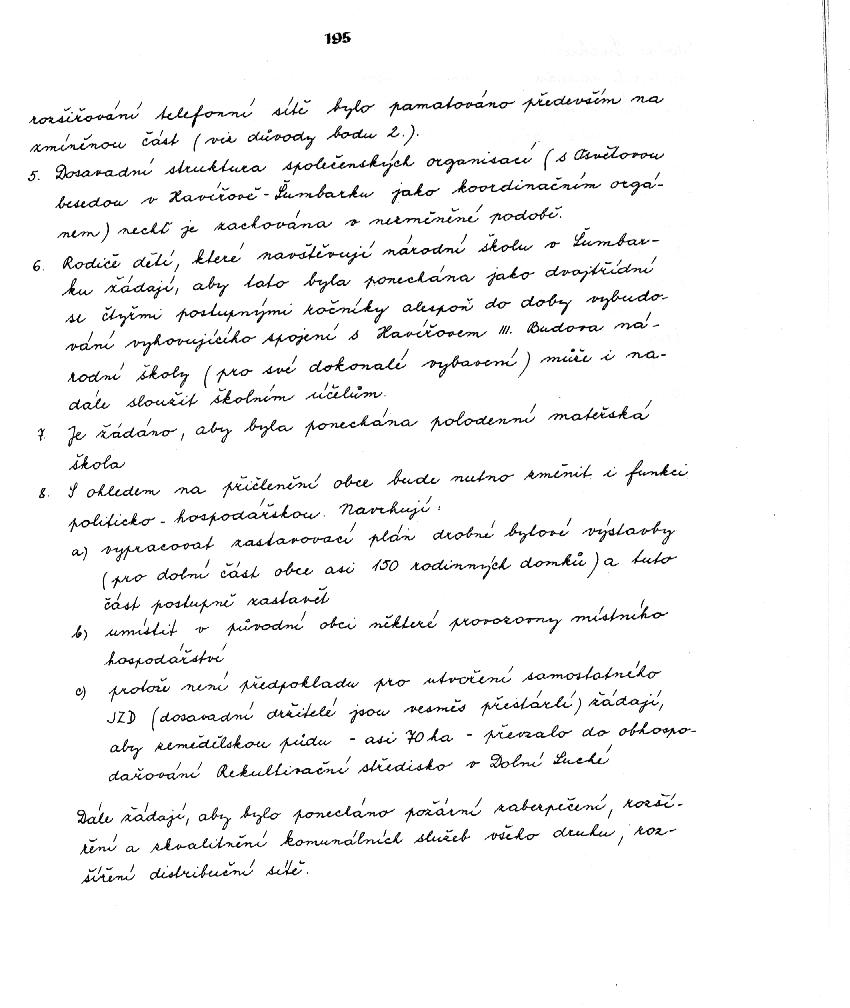 195
rozšiřování telefonní sítě bylo pamatováno především na
zmíněnou část (viz důvody bodu 2.).
5. Dosavadní struktura společenských organisací (s Osvětovou
besedou v Havířově-Šumbarku jako koordinačním orgá-
nem) nechť je zachována v nezměněné podobě.
6. Rodiče dětí, které navštěvují národní školu v Šumbar-
ku žádají, aby tato byla ponechána jako dvojtřídní
se čtyřmi postupnými ročníky alespoň do doby vybudo-
vání vyhovujícího spojení s Havířovem III. Budova ná-
rodní školy (pro své dokonalé vybavení) může i na-
dále sloužit školním účelům.
7. Je žádáno, aby byla ponechána polodenní mateřská
škola
8. S ohledem na přičlenění obce bude nutno změnit i funkci
politicko-hospodářskou. Navrhují:
a) vypracovat zastavovací plán drobné bytové výstavby
(pro dolní část obce asi 150 rodinných domků) a tuto
část postupně zastavět
b) umístit v původní obci některé provozovny místního
hospodářství
c) protože není předpokladu pro utvoření samostatného
JZD (dosavadní držitelé jsou vesměs přestárlí) žádají,
aby zemědělskou půdu - asi 70 ha - převzalo do obhospo-
dařování Rekultivační středisko v Dolní Suché
Dále žádají, aby bylo ponecháno požární zabezpečení, rozší-
ření a zkvalitnění komunálních služeb všeho druhu, roz-
šíření distribuční sítě.